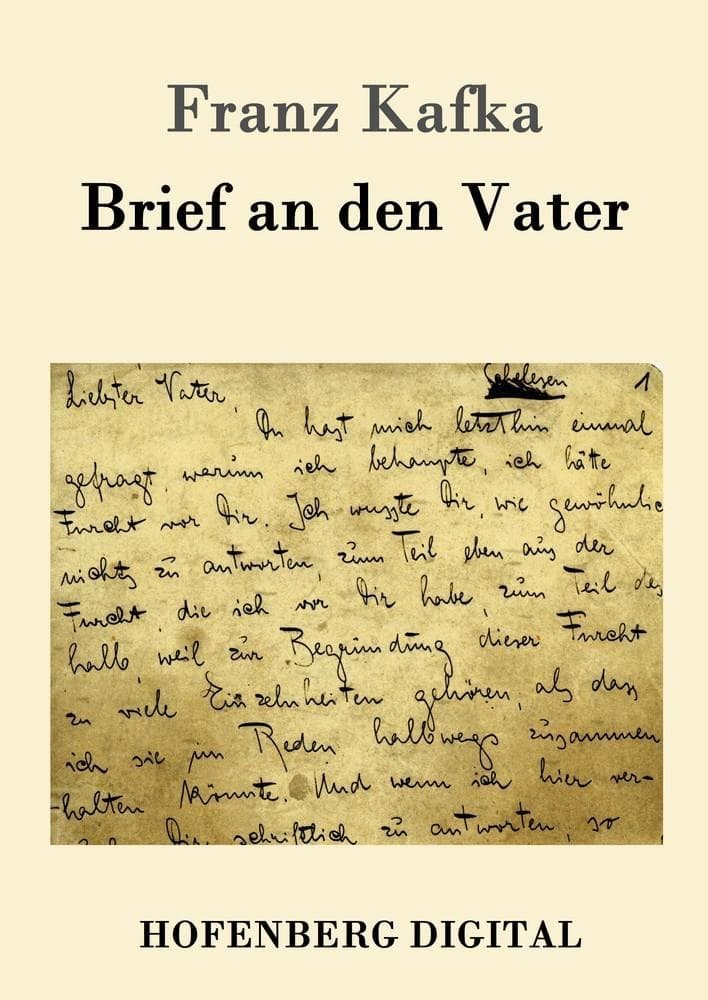 Franz Kafka
Brief an den Vater
Schelesen
1
Liebster Vater,
Du hast mich letzthin einmal
gefragt, warum ich behaupte, ich hätte
Furcht vor Dir. Ich wusste Dir, wie gewöhnlic
nichts zu antworten, zum Teil eben aus der
Furcht, die ich vor Dir habe, zum Teil des
halb, weil zur Begründung dieser Furcht
zu viele Einzelnheiten gehören, als dass
ich sie im Reden halbwegs zusammen
-halten könnte. Und wenn ich hier ver-
Dir schriftlich zu antworten, so
HOFENBERG DIGITAL